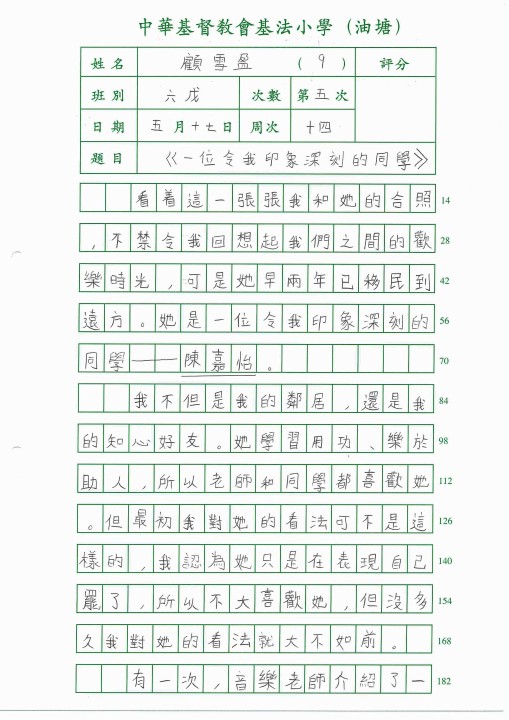 中華基督教會基法小學（油塘）
姓名 顧雪盈 (9) 評分
班別 六戊 次數 第五次
日期 五月十七日 周次 十四
題目 《一位令我印象深刻的同學》
看着這一張張我和她的合照 14
，不禁令我回想起我們之間的歡 28
樂時光，可是她早兩年已移民到 42
遠方。她是一位令我印象深刻的 56
同學——陳嘉怡。 70
我不但是我的鄰居，還是我 84
的知心好友。她學習用功、樂於 98
助人，所以老師和同學都喜歡她 112
。但最初我對她的看法可不是這 126
樣的，我認為她只是在表現自己 140
罷了，所以不大喜歡她，但沒多 154
久我對她的看法就大不如前。 168
有一次，音樂老師介紹了一 182